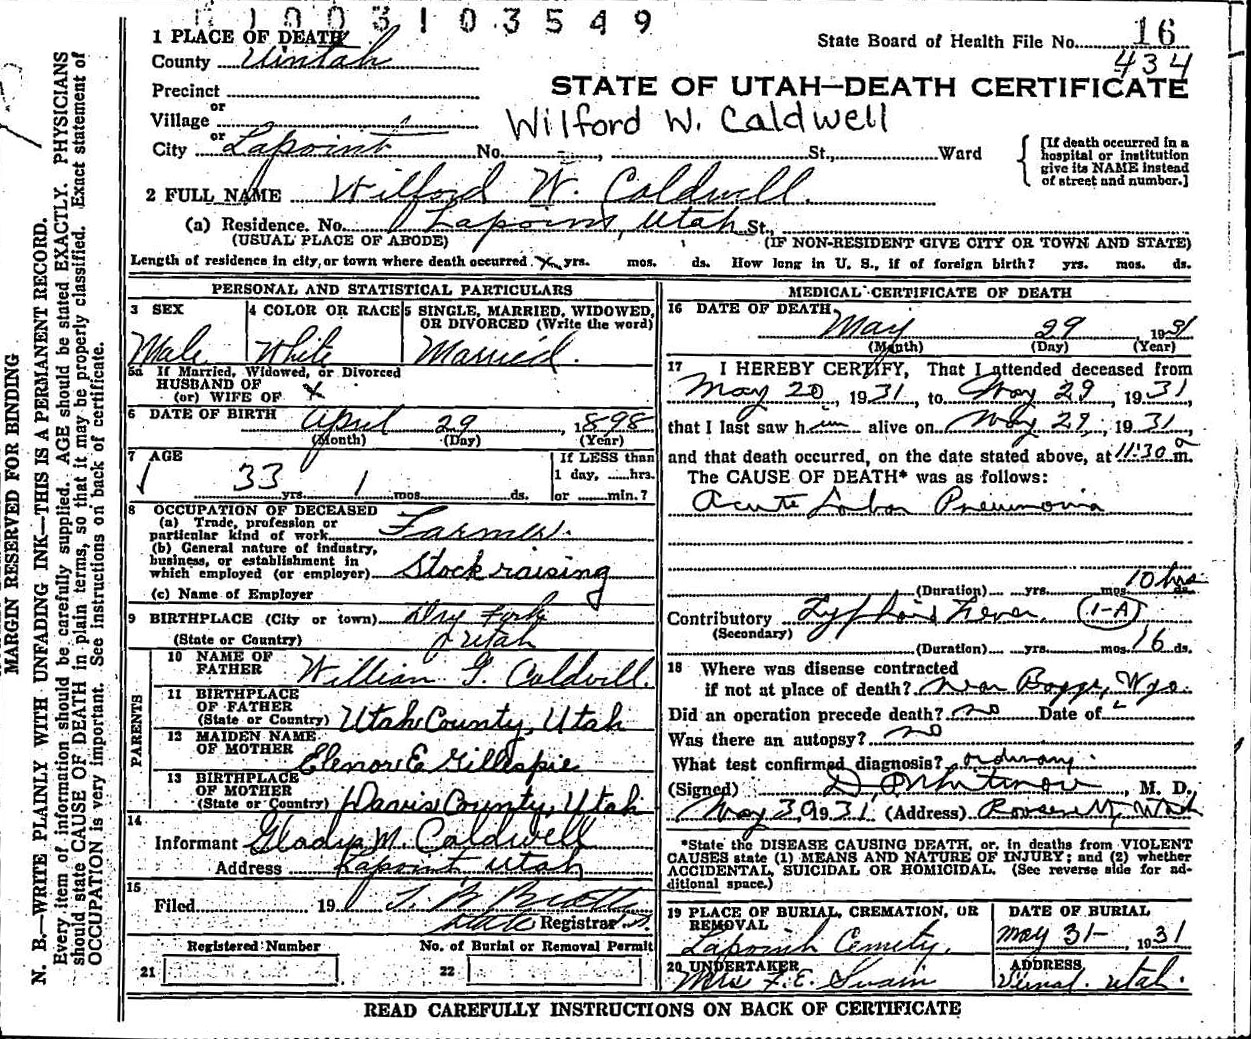 1003103549
1 PLACE OF DEATH
State Board of Health File No. 16
434
County Uintah
STATE OF UTAH—DEATH CERTIFICATE
Precinct
or
Village
Wilford W. Caldwell
or
City Lapoint No. - , St., Ward
[If death occurred in a
hospital or institution
give its NAME instead
of street and number.]
2 FULL NAME Wilford W. Caldwell.
(a) Residence. No. Lapoint, Utah St.,
(USUAL PLACE OF ABODE) (IF NON-RESIDENT GIVE CITY OR TOWN AND STATE)
Length of residence in city, or town where death occurred. x yrs. mos. ds. How long in U. S., if of foreign birth? yrs. mos. ds.
PERSONAL AND STATISTICAL PARTICULARS
3 SEX
Male
4 COLOR OR RACE
White
5 SINGLE, MARRIED, WIDOWED,
OR DIVORCED (Write the word)
Married.
5a If Married, Widowed, or Divorced
HUSBAND OF
(or) WIFE OF x
6 DATE OF BIRTH April 29, 1898
(Month) (Day) (Year)
7 AGE
33 yrs. 1 mos. ds.
If LESS than
1 day, hrs.
or min.?
8 OCCUPATION OF DECEASED
(a) Trade, profession or
particular kind of work Farmer.
(b) General nature of industry,
business, or establishment in
which employed (or employer) Stock raising
(c) Name of Employer
9 BIRTHPLACE (City or town) Dry Fork
(State or Country) Utah
PARENTS
10 NAME OF
FATHER William G. Caldwell.
11 BIRTHPLACE
OF FATHER
(State or Country) Utah County, Utah
12 MAIDEN NAME
OF MOTHER Elenor E Gillespie
13 BIRTHPLACE
OF MOTHER
(State or Country) Davis County, Utah
14
Informant Gladys M. Caldwell
Address Lapoint, Utah,
15
Filed 19
Registrar
Registered Number No. of Burial or Removal Permit
21 22
MEDICAL CERTIFICATE OF DEATH
16 DATE OF DEATH
May 29 1931
(Month) (Day) (Year)
17 I HEREBY CERTIFY, That I attended deceased from
May 20, 1931, to May 29, 1931,
that I last saw him alive on May 29, 1931,
and that death occurred, on the date stated above, at 11:30 a m.
The CAUSE OF DEATH* was as follows:
Acute Lobar Pneumonia
10 hrs
(Duration) yrs. mos. ds.
Contributory Typhoid Fever (1-A)
(Secondary)
(Duration) yrs. mos. 16 ds.
18 Where was disease contracted
if not at place of death? near Baggs, Wyo.
Did an operation precede death? no Date of
Was there an autopsy? no
What test confirmed diagnosis? ordinary
(Signed) , M. D.
May 30, 1931 (Address) Roosevelt, Utah
*State the DISEASE CAUSING DEATH, or, in deaths from VIOLENT
CAUSES state (1) MEANS AND NATURE OF INJURY; and (2) whether
ACCIDENTAL, SUICIDAL OR HOMICIDAL. (See reverse side for ad-
ditional space.)
19 PLACE OF BURIAL, CREMATION, OR
REMOVAL
Lapoint Cemetry.
DATE OF BURIAL
May 31-, 1931
20 UNDERTAKER
Mrs F. E. Swain
ADDRESS
Vernal. Utah.
READ CAREFULLY INSTRUCTIONS ON BACK OF CERTIFICATE
MARGIN RESERVED FOR BINDING
N. B.—WRITE PLAINLY WITH UNFADING INK—THIS IS A PERMANENT RECORD.
Every item of information should be carefully supplied. AGE should be stated EXACTLY. PHYSICIANS
should state CAUSE OF DEATH in plain terms, so that it may be properly classified. Exact statement of
OCCUPATION is very important. See instructions on back of certificate.